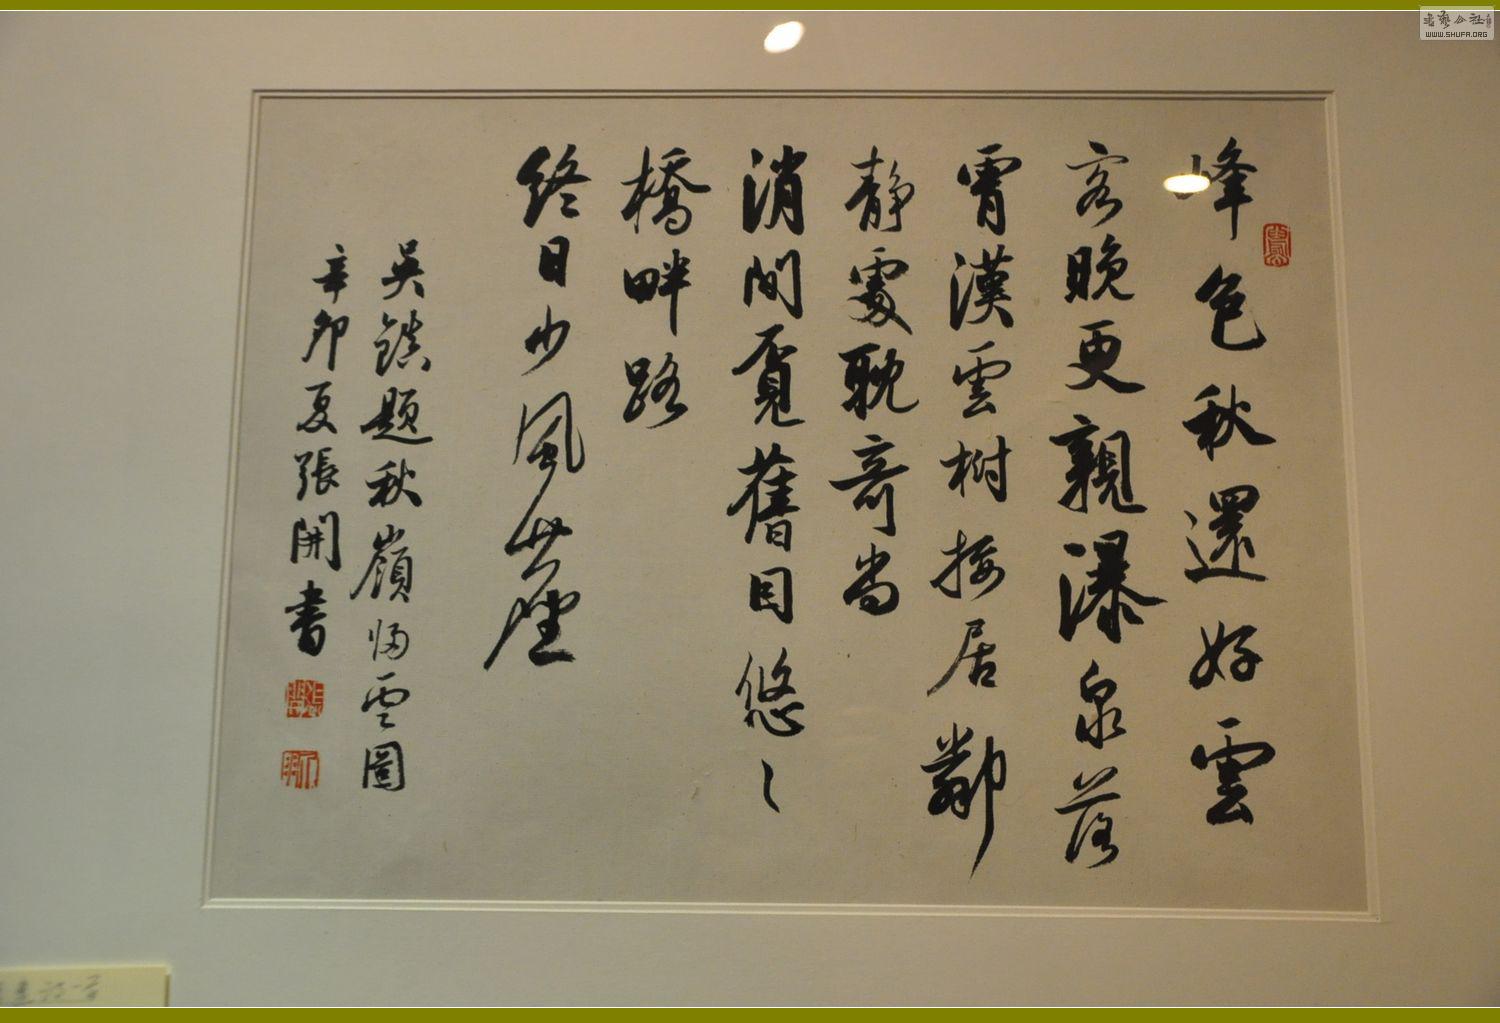 峰色秋還好雲
客晚更親瀑泉落
霄漢雲樹接居鄰
靜處耽奇尚
消閒覓舊目悠〻
橋畔路
終日少風塵
吳鎮題秋嶺歸雲圖
辛卯夏張開書
書藝公社
WWW.SHUFA.ORG